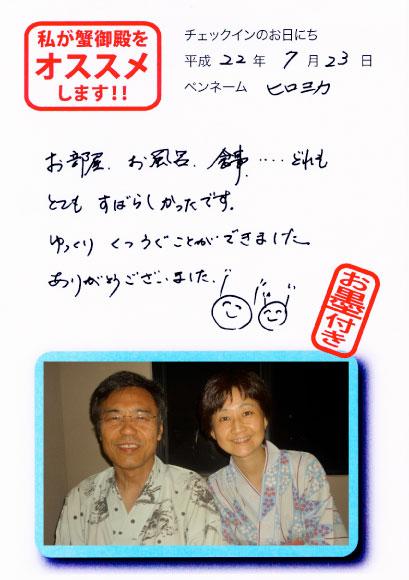 私が蟹御殿を
オススメ
します!!
チェックインのお日にち
平成 22 年 7 月 23 日
ペンネーム ヒロヨカ
お部屋、お風呂、食事、‥‥どれも
とても すばらしかったです。
ゆっくり くつろぐことができました
ありがとうございました。
お墨付き